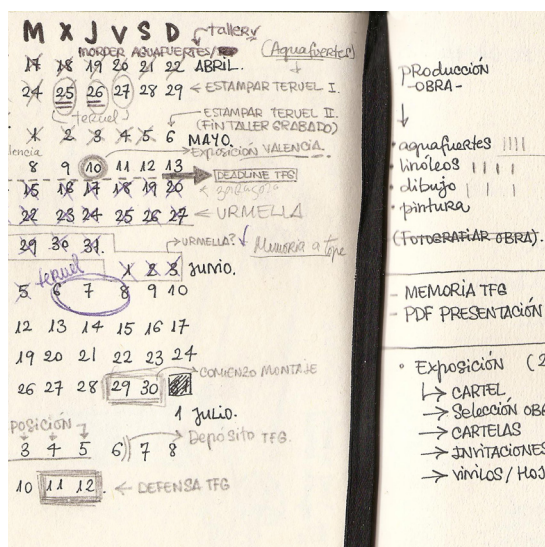 M X J V S D
taller
MORDER AGUAFUERTES/
(Aguafuertes)
17 18 19 20 21 22 ABRIL.
24 25 26 27 28 29 ← ESTAMPAR TERUEL I.
(teruel)
ESTAMPAR TERUEL II.
(FIN TALLER GRABADO)
1 2 3 4 5 6 MAYO.
lencia
Exposición VALENCIA.
8 9 10 11 12 13
DEADLINE TFG
15 16 17 18 19 20
22 23 24 25 26 27 ← URMELLA
29 30 31.
URMELLA?
Memoria a tope
teruel
1 2 3 JUNIO.
5 6 7 8 9 10
12 13 14 15 16 17
19 20 21 22 23 24
COMIENZO MONTAJE
26 27 28 29 30
1 JULIO.
POSICIÓN
Depósito TFG.
3 4 5 6) 7 8
10 11 12. ← DEFENSA TFG
PRoducción
-OBRA-
↓
• aguafuertes ||||
• linóleos | | |
• dibujo | | |
• pintura
(FOTOGRAFIAR OBRA).
- MEMORIA TFG
- PDF PRESENTACIÓN
• Exposición (2
↳ CARTEL
→ Selección OB
→ CARTELAS
→ INVITACIONES
→ VINILOS / HOJ